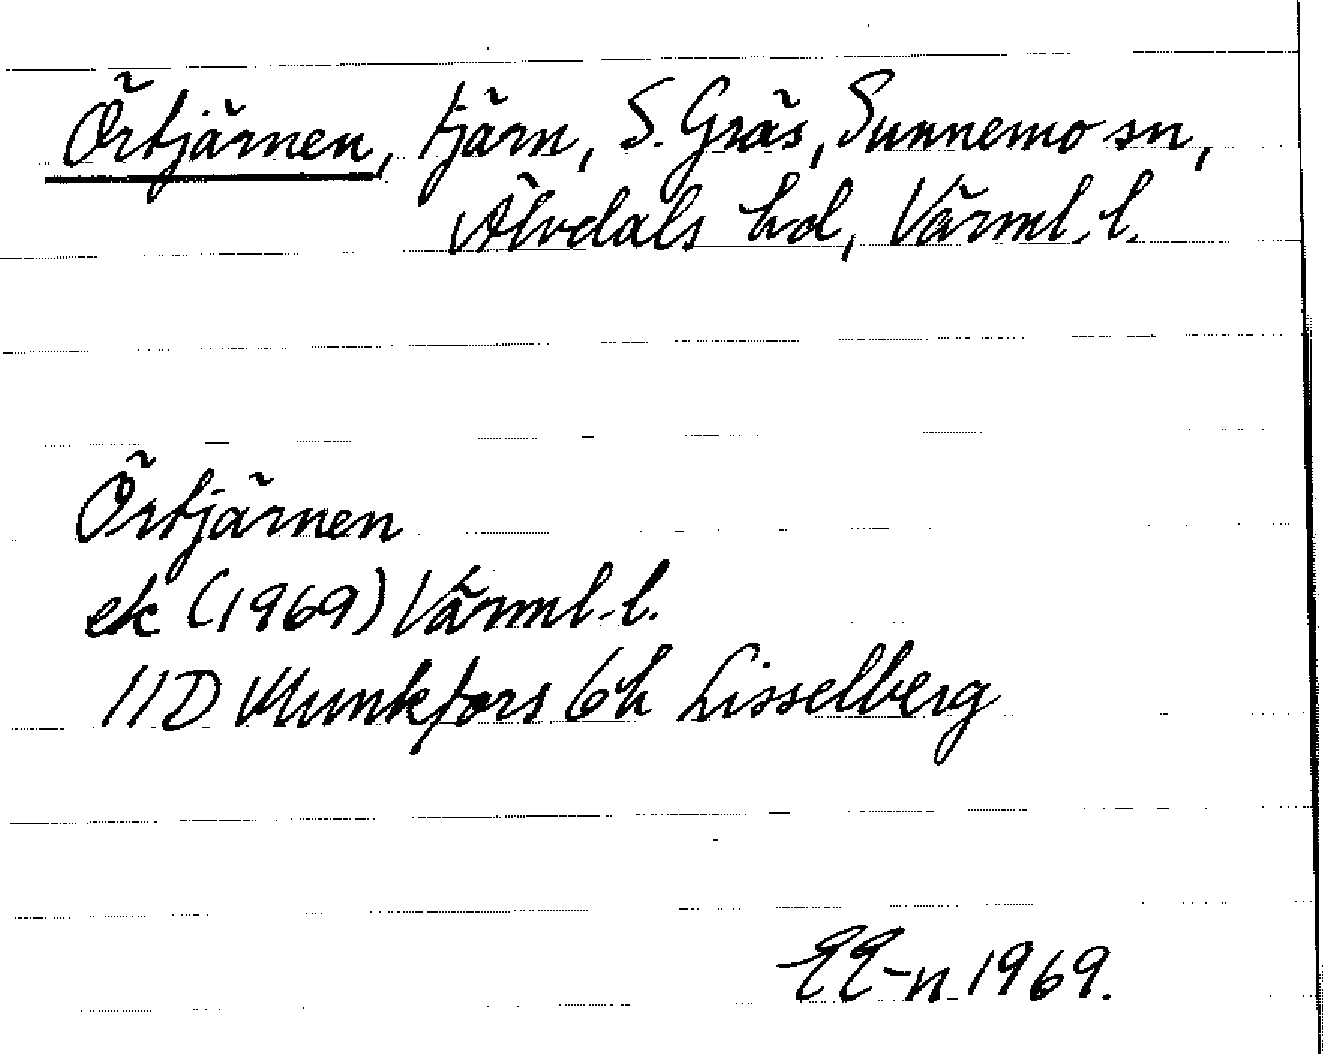 Örtjärnen, tjärn, S. Gräs, Sunnemo sn,
Älvdals hd, Värml. l.
Örtjärnen
ek (1969) Värml. l.
11D Munkfors 6h Lisselberg
EE-n 1969.